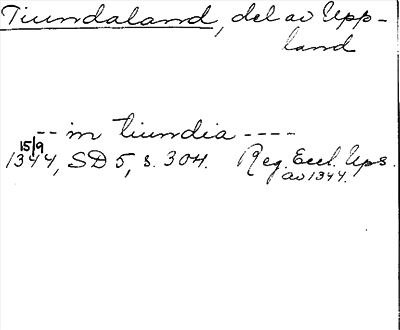 Tiundaland, del av Upp-
land
-- in tiundia ----
15/9
1344, SD 5, s. 304. Reg. Eccl. Ups.
av 1344.